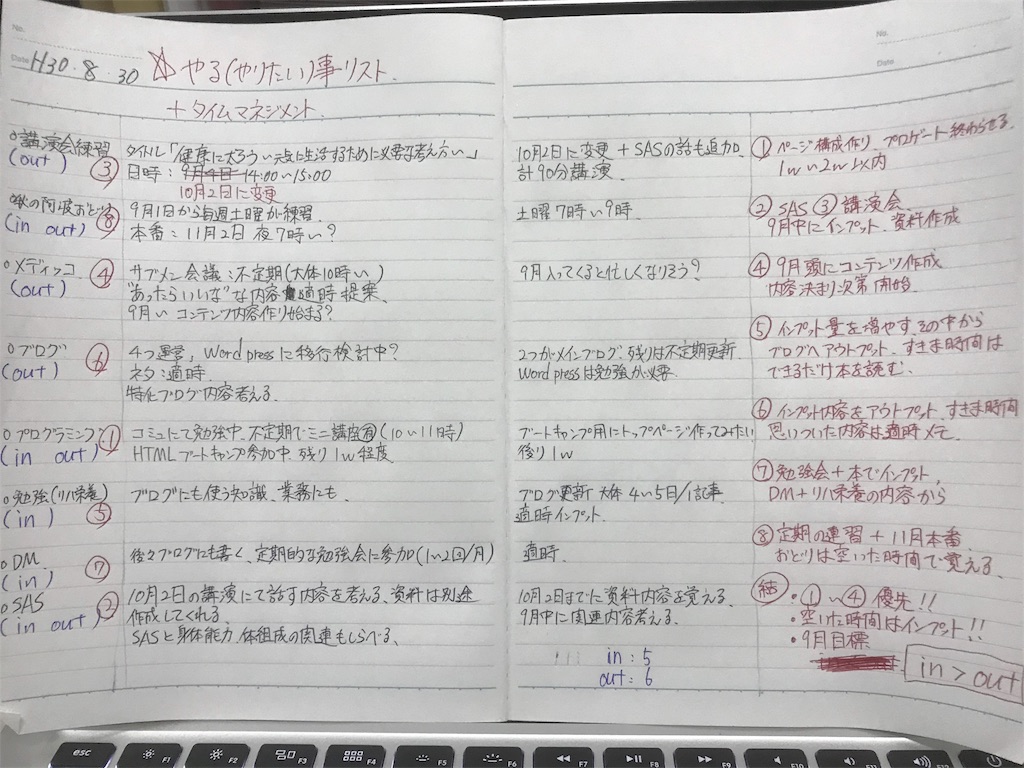 No.
Date H30・8・30
☆ やる(やりたい)事リスト.
+ タイムマネジメント.
○講演会練習
(out) ③
タイトル「健康に太ろう〜元気に生活するために必要な考え方〜」
日時：9月4日 14:00〜15:00
10月2日に変更
10月2日に変更 + SASの話も追加.
計90分講演.
○秋の阿波おどり
(in out) ⑧
9月1日から毎週土曜が練習.
本番：11月2日 夜7時〜?
土曜7時〜9時.
○メディッコ
(out) ④
サブメン会議：不定期(大体10時〜)
"あったらいいな"な内容 適時提案.
9月〜コンテンツ内容作り始まる?
9月入ってくると忙しくなりそう?
○ブログ
(out) ⑥
4つ運営, Word pressに移行検討中?
ネタ：適時.
特化ブログ内容考える.
2つがメインブログ. 残りは不定期更新.
Word pressは勉強が必要.
○プログラミング
(in out) ①
コミュにて勉強中. 不定期でミニ講座有(10〜11時)
HTMLブートキャンプ参加中. 残り1w程度.
ブートキャンプ用にトップページ作ってみたい
後り1w
○勉強(リハ栄養)
(in) ⑤
ブログにも使う知識. 業務にも.
ブログ更新 大体4〜5日/1記事
適時インプット.
○DM.
(in) ⑦
後々ブログにも書く. 定期的な勉強会に参加(1〜2回/月)
適時.
○SAS
(in out) ②
10月2日の講演にて話す内容を考える. 資料は別途
作成してくれる.
SASと身体能力. 体組成の関連もしらべる.
10月2日までに資料内容を覚える.
9月中に関連内容考える.
in：5
out：6
No.
Date
① ページ構成作り. プロゲート終わらせる.
1w〜2w以内
② SAS ③ 講演会.
9月中にインプット. 資料作成
④ 9月頭にコンテンツ作成
内容決まり次第開始.
⑤ インプット量を増やす. その中から
ブログへアウトプット. すきま時間は
できるだけ本を読む.
⑥ インプット内容をアウトプット. すきま時間
思いついた内容は適時メモ.
⑦ 勉強会+本でインプット.
DM+リハ栄養の内容から
⑧ 定期の連習 + 11月本番.
おどりは空いた時間で覚える.
結 ・①〜④ 優先!!
・空いた時間はインプット!!
・9月目標
in > out
esc
F1
F2
F3
F4
F5
F6
F7
F8
F9
F10
F11
F12